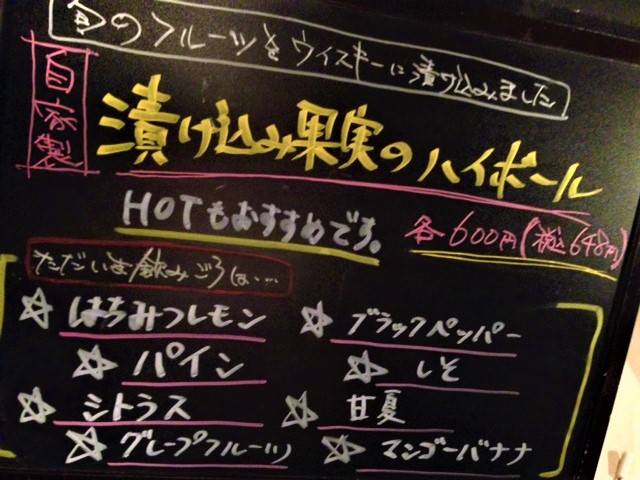 旬のフルーツをウィスキーに漬け込みました
自家製
漬け込み果実のハイボール
HOTもおすすめです。
各600円(税込648円)
ただいま飲みごろは…
☆はちみつレモン
☆ブラックペッパー
☆パイン
☆しそ
☆シトラス
☆甘夏
☆グレープフルーツ
☆マンゴーバナナ